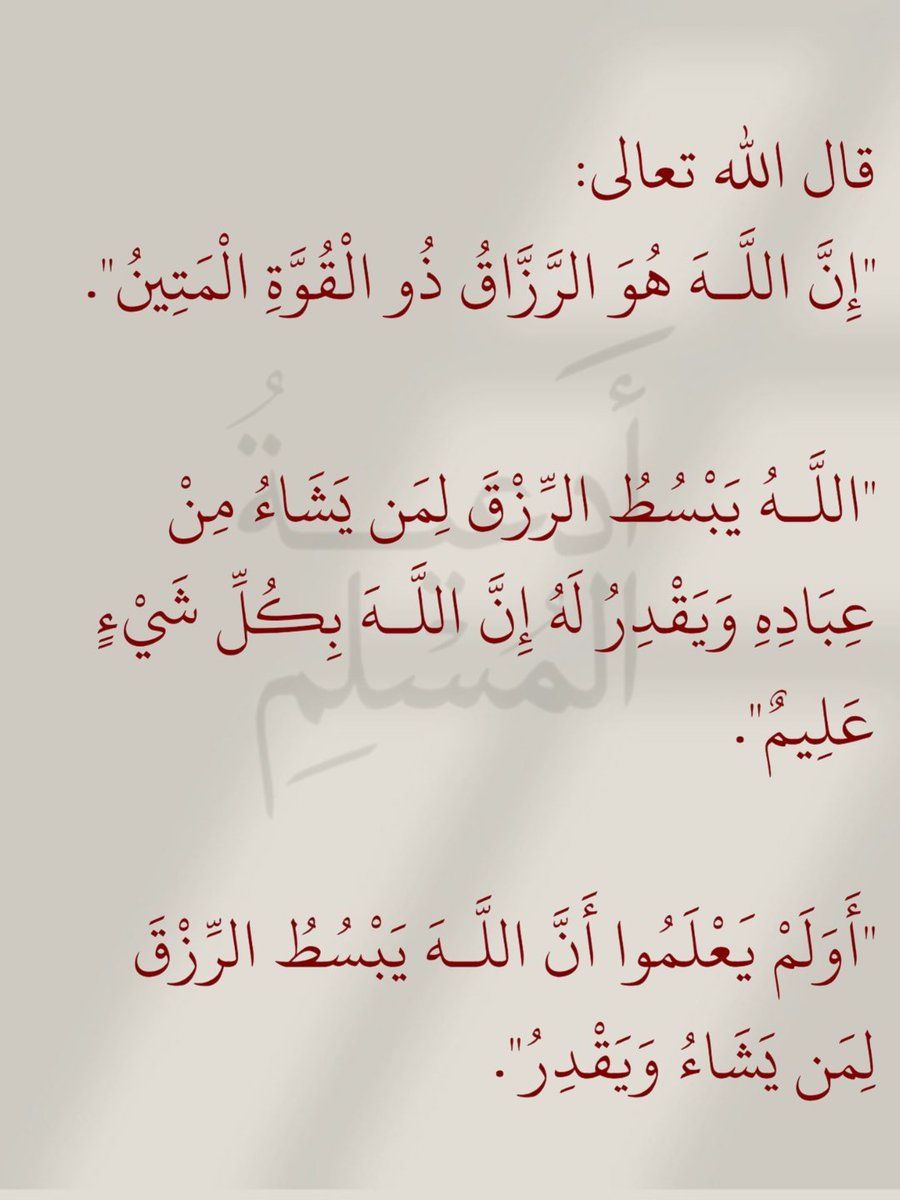 قال الله تعالى:
"إِنَّ اللَّـهَ هُوَ الرَّزَّاقُ ذُو الْقُوَّةِ الْمَتِينُ".
"اللَّـهُ يَبْسُطُ الرِّزْقَ لِمَن يَشَاءُ مِنْ
عِبَادِهِ وَيَقْدِرُ لَهُ إِنَّ اللَّـهَ بِكُلِّ شَيْءٍ
عَلِيمٌ".
"أَوَلَمْ يَعْلَمُوا أَنَّ اللَّـهَ يَبْسُطُ الرِّزْقَ
لِمَن يَشَاءُ وَيَقْدِرُ".
أَدعيـةُ
المُسْلِمِ